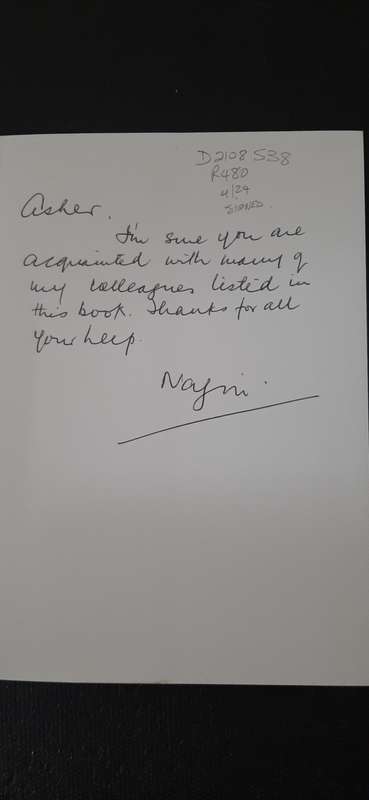 D2108 S38
R480
4/24
SIGNED.
Asher.
I'm sure you are
acquainted with many of
my colleagues listed in
this book. Thanks for all
your help.